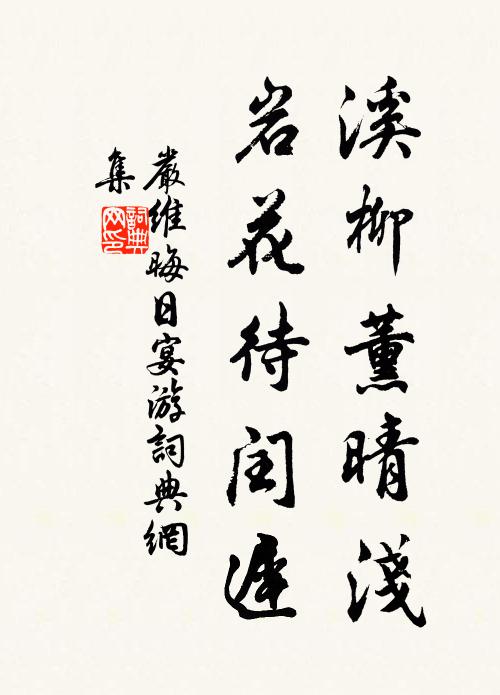 溪柳薰晴淺
岩花待闰遲
嚴維晦日宴游詞典網
集
詞典网印